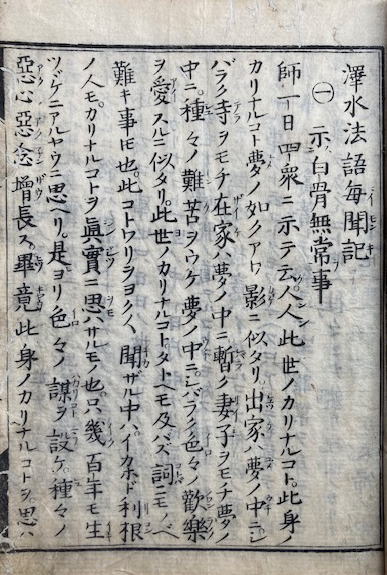 澤水法語毎聞記
㊀示白骨無常事
師一日四衆ニ示テ云人人此世ノカリナルコト。此身ノ
カリナルコト夢ノ如クアワ影ニ似タリ。出家ハ夢ノ中ニシ
バラク寺ヲモチ在家ハ夢ノ中ニ暫ク妻子ヲモチ夢ノ
中ニ。種々ノ難苦ヲウケ夢ノ中ニ。シバラク色々ノ歡樂
ヲ愛スルニ似タリ。此世ノカリナルコトタトヘモ及バズ詞ニモノベ
難キ事也。此コトワリヲヨク〱聞ザル中ハ。イカホド利根
ノ人モ。カリナルコトヲ眞實ニ思ハサルモノ也。只幾百年モ生
ツヾケニアルヤウニ思ヘリ。是ヨリノ色々ノ謀ヲ設ケ。種々ノ
惡心惡念増長ス。畢竟此身ノカリナルコトヲ。思ハ